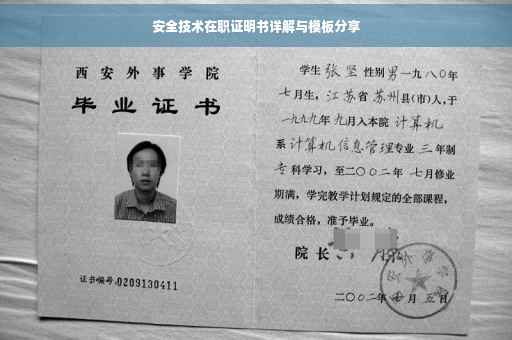 安全技术在职证明书详解与模板分享
西安外事学院
毕业证书
证书编号:0209130411
学生 张坚 性别男 一九八〇年
七月生，江苏省 苏州县(市)人，于
一九九九年 九月入本院 计算机
系 计算机信息管理专业 三 年制
专科学习，至二〇〇二年 七月修业
期满，学完教学计划规定的全部课程，
成绩合格，准予毕业。
院长
二〇〇二年 月 五日